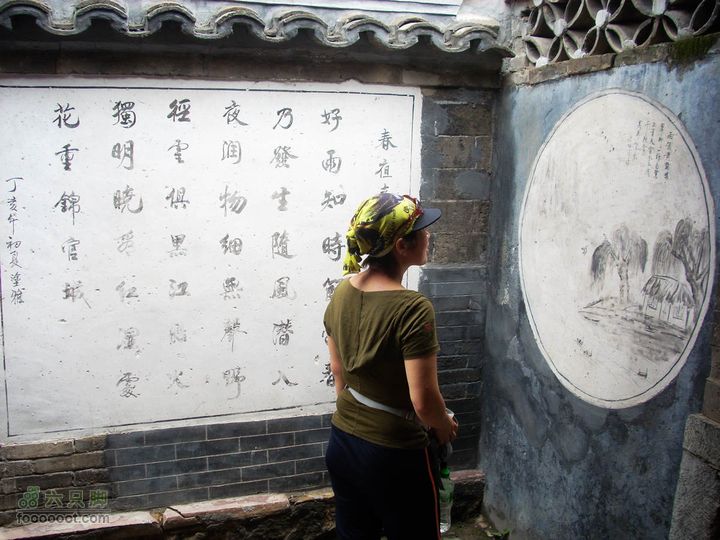 春夜
好雨知時節春
乃發生隨風潛入
夜潤物細無聲野
徑雲俱黑江船火
獨明曉看紅濕處
花重錦官城
丁亥年初夏塗雅
六只脚
foooooot.com